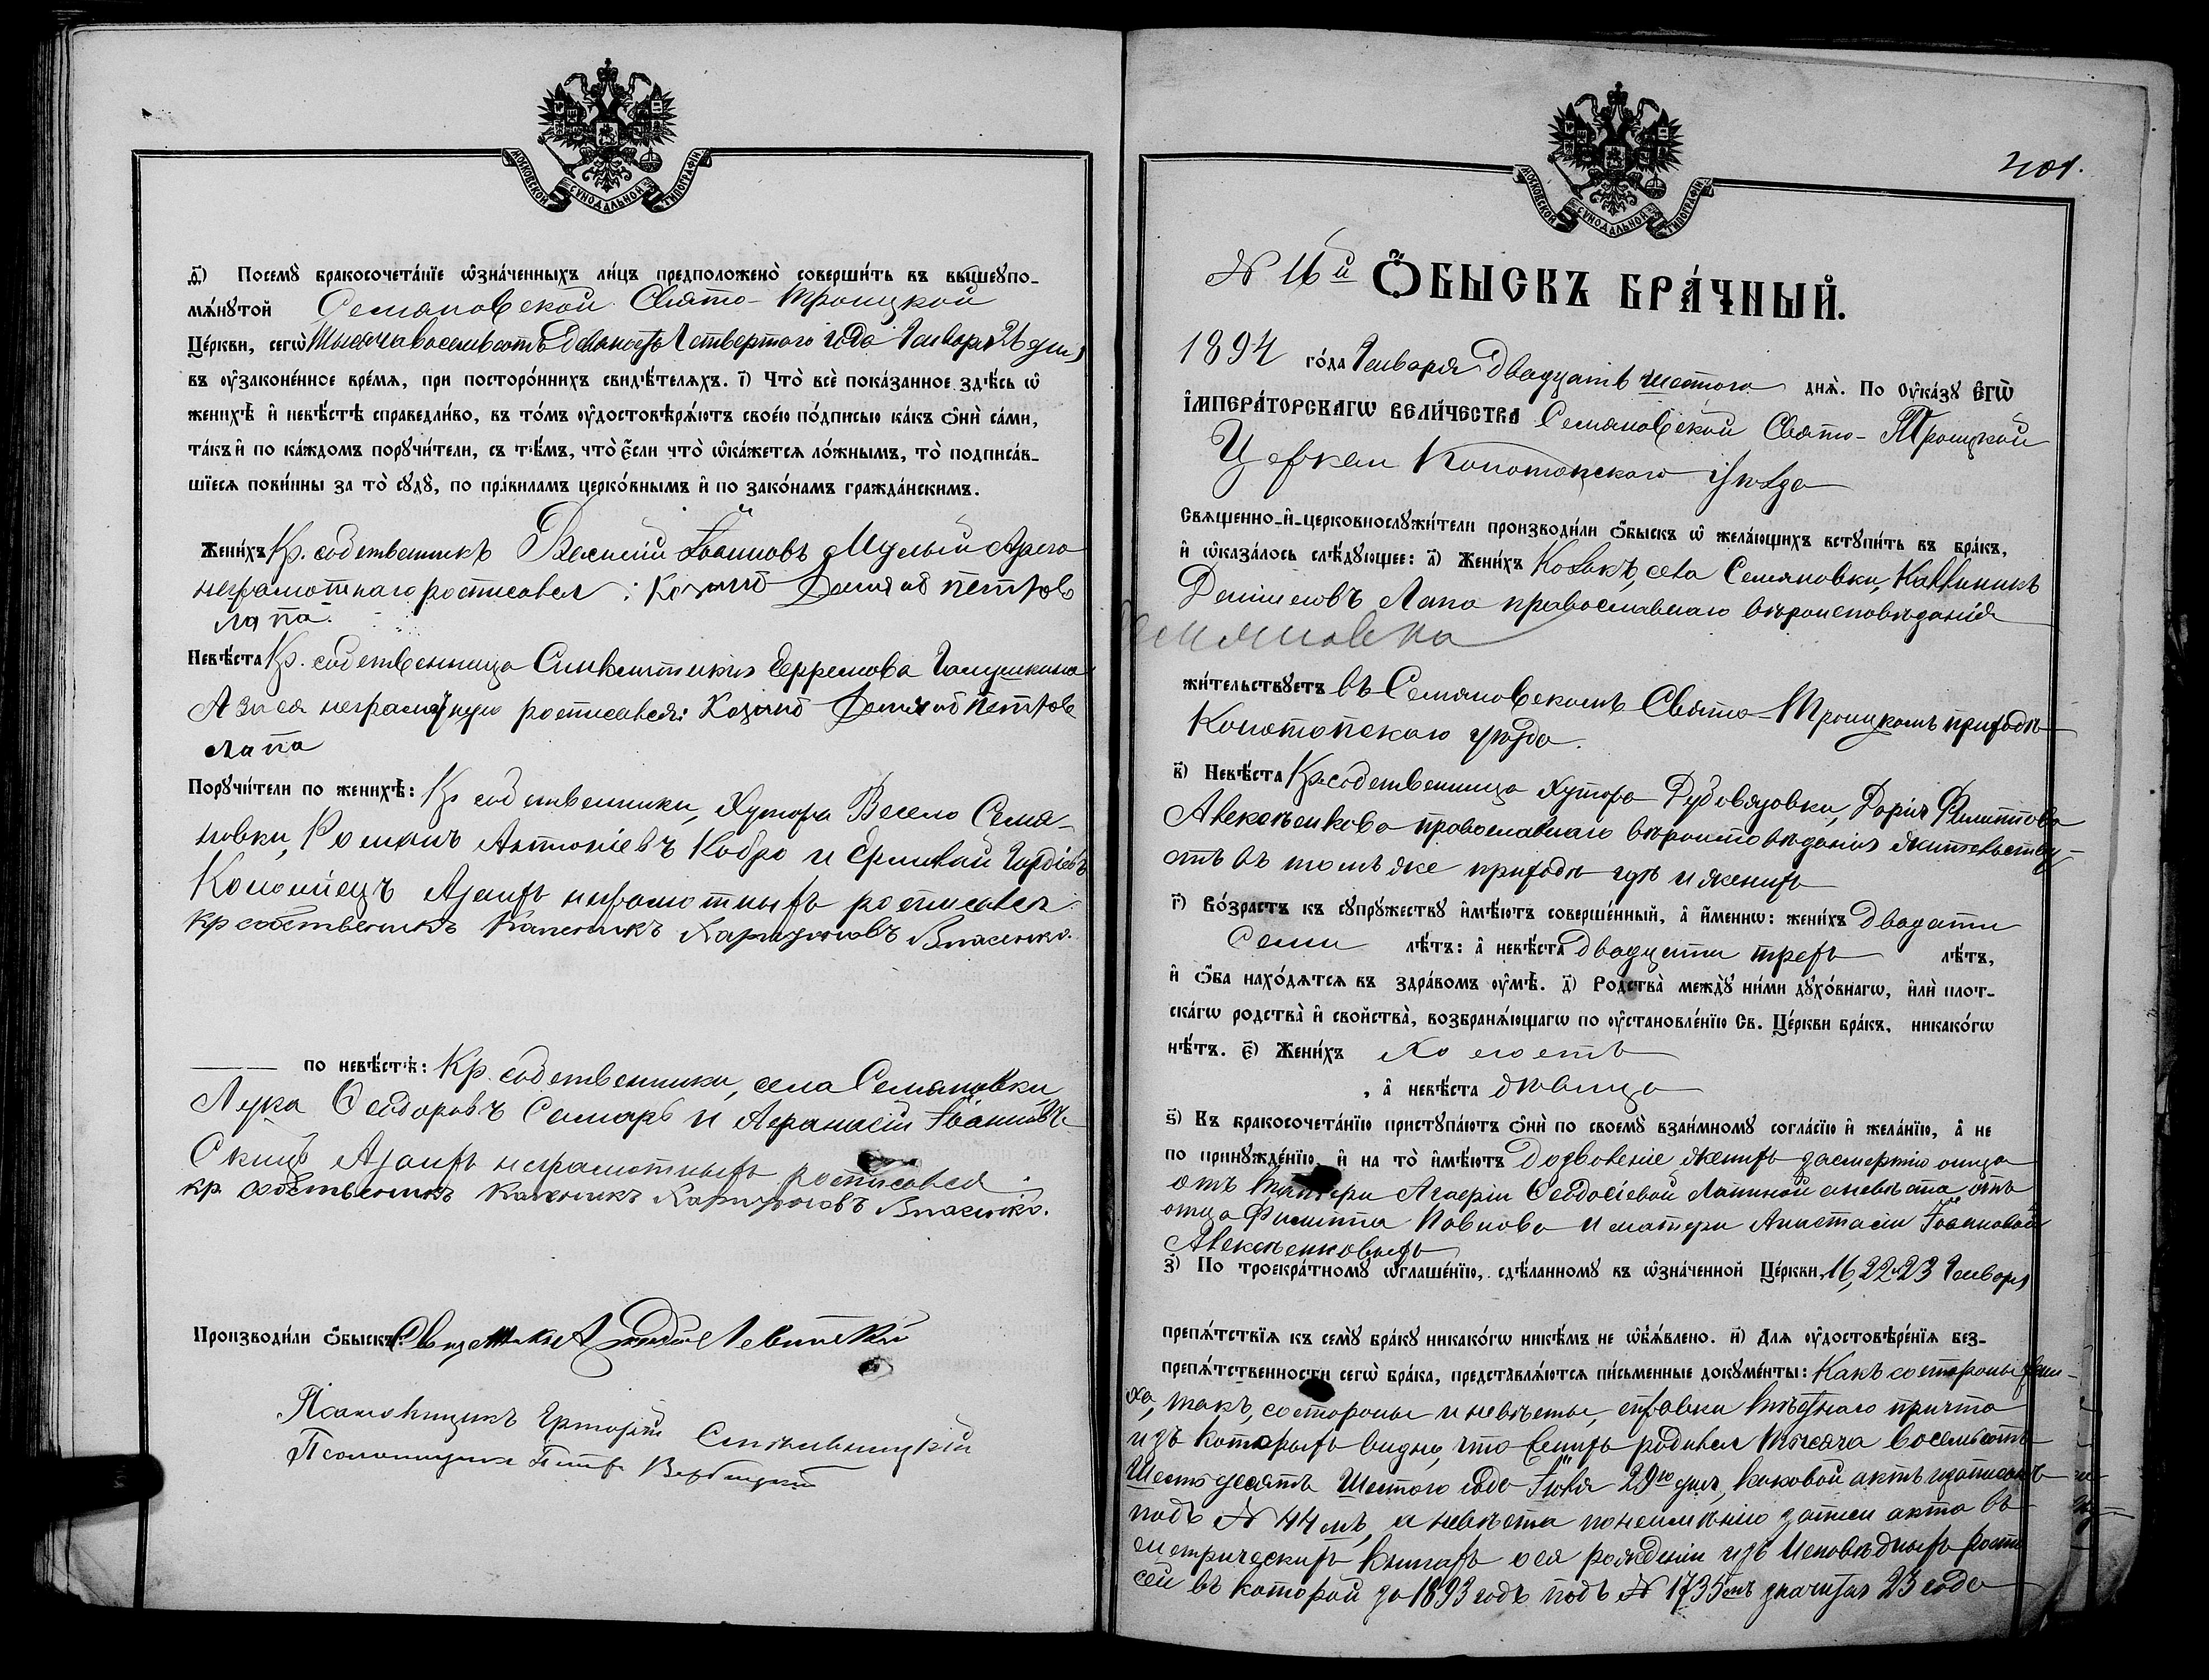 МОСКОВСКОЙ СѴНОДАЛЬНОЙ ТИПОГРАФІИ
д҃) Посемꙋ̀ бракосочета́нїе ѡ҆зна́ченныхъ ли́цъ предположено̀ соверши́ть въ вышеꙋпо-
мѧ́нꙋтой Семяновской Свято-Троицкой
Це́ркви, сегѡ̀ Тысяча восемьсотъ Девяносто Четвертого года Января 26 дня,
въ ᲂу҆зако́не́нное вре́мѧ, при посторо́ннихъ свидѣ́телѧхъ. і҃) Что̀ всѐ пока́занное здѣ́сь ѡ҆
женихѣ̀ и҆ невѣ́стѣ справедли́во, въ то́мъ ᲂу҆достовѣрѧ́ютъ свое́ю по́дписью ка́къ ѻ҆нѝ са́ми,
та́къ и҆ по ка́ждомъ порꙋчи́тели, съ тѣ́мъ, что̀ є҆́сли что̀ ѡ҆ка́жетсѧ ло́жнымъ, то̀ подписа́в-
шїесѧ пови́нны за то̀ сꙋдꙋ̀, по пра́виламъ церко́внымъ и҆ по зако́намъ гражда́нскимъ.
Жени́хъ Кр. собственникъ Василій Іоанновъ Мулый А за его
неграмотнаго росписался: Козакъ Даніилъ Петровъ
Лапа.
Невѣ́ста Кр. собственница Синклитикія Ефремова Галушкина
А за ея неграмотную росписался: Козакъ Даніилъ Петровъ
Лапа
Порꙋчи́тели по женихѣ̀: Кр. собственники, Хутора Весело Семя-
новки, Романъ Антоніевъ Кобро и Ермолай Гордіевъ
Коломіецъ А за ихъ неграмотныхъ росписался
кр собственникъ Калинникъ Харитоновъ Власенко.
по невѣ́стѣ: Кр. собственники, села Семяновки,
Лука Ѳеодоровъ Самарь и Афанасій Іоанновъ
А за ихъ неграмотныхъ росписался
кр. собственникъ Калинникъ Харитоновъ Власенко.
Производи́ли ѻ҆́быскъ: Священникъ Левитскій
Псаломщикъ
Псаломщикъ Петръ Вербицкій
МОСКОВСКОЙ СѴНОДАЛЬНОЙ ТИПОГРАФІИ
201.
№ 16й Ѻ҆БЫСКЪ БРА́ЧНЫЙ.
1894 го́да Января Двадцать шестого днѧ̀. По Оу҆ка́зꙋ Є҆гѡ̀
І҆мпера́торскагѡ Вели́чества Семяновской Свято-Троицкой
Церкви Конотопскаго уѣзда
Свѧщенно-и҆-церковнослꙋжи́тели производи́ли ѻ҆́быскъ ѡ҆ жела́ющихъ встꙋпи́ть въ бра́къ,
и҆ ѡ҆каза́лось слѣ́дꙋющее: а҃) Жени́хъ Козакъ, села Семяновки, Каллиникъ
Даниловъ Лапа православнаго вѣроисповѣданія
Семяновка
жи́тельствꙋетъ въ Семяновскомъ Свято-Троицкомъ приходѣ
Конотопскаго уѣзда.
в҃) Невѣ́ста Кр. собственница Хутора Дубовязовки, Дарія Филиппова
Алексѣенкова православнаго вѣроисповѣданія жительству-
етъ въ томъ же приходѣ гдѣ и женихъ
г҃) Во́зрастъ къ сꙋпрꙋ́жествꙋ и҆мѣ́ютъ соверше́нный, а҆ и҆́меннѡ: жени́хъ двадцати
семи лѣ́тъ: а҆ невѣ́ста двадцати трехъ лѣ́тъ,
и҆ ѻ҆́ба нахо́дѧтсѧ въ здра́вомъ ᲂу҆мѣ̀. д҃) Родства̀ междꙋ̀ ни́ми дꙋхо́внагѡ, и҆лѝ плот-
ска́гѡ родства̀ и҆ свойства̀, возбранѧ́ющагѡ по ᲂу҆становле́нїю Св. Це́ркви бра́къ, никако́гѡ
нѣ́тъ. є҃) Жени́хъ холостъ
, а҆ невѣ́ста дѣвица
ѕ҃) Въ бракосочета́нїю пристꙋпа́ютъ ѻ҆нѝ по своемꙋ̀ взаи́мномꙋ согла́сїю и҆ жела́нїю, а҆ не
по принꙋжде́нїю, и҆ на то̀ и҆мѣ́ютъ дозволеніе женихъ за смертію отца
отъ матери Агафіи Ѳеодосіевой Лапиной а невѣста отъ
отца Филиппа Павлова и матери Анастасіи Іоанновой
Алексѣенковыхъ
з҃) По троекра́тномꙋ ѡ҆глаше́нїю, сдѣ́ланномꙋ въ ѡ҆зна́ченной Це́ркви, 16, 22 и 23 Января
препѧ́тствїѧ къ семꙋ̀ бра́кꙋ никако́гѡ никѣ́мъ не ѡ҆б̾ѧ́влено. и҃) Длѧ ᲂу҆достовѣре́нїѧ без-
препѧ́тственности сегѡ̀ бра́ка, предста́влѧютсѧ пи́сьменные докꙋме́нты: Какъ со стороны жени-
ха, такъ, со стороны и невѣсты, справки мѣстнаго причта
изъ которыхъ видно, что женихъ родился тысяча восемьсотъ
Шестьдесятъ Шестого года Іюля 29го дня, каковой актъ записанъ
подъ № 44мъ, а невѣста по неимѣнію записи акта въ
метрическихъ книгахъ о ея рожденіи изъ Исповѣдныхъ роспи-
сей въ которой за 1893 годъ подъ № 1735мъ значится 23 года